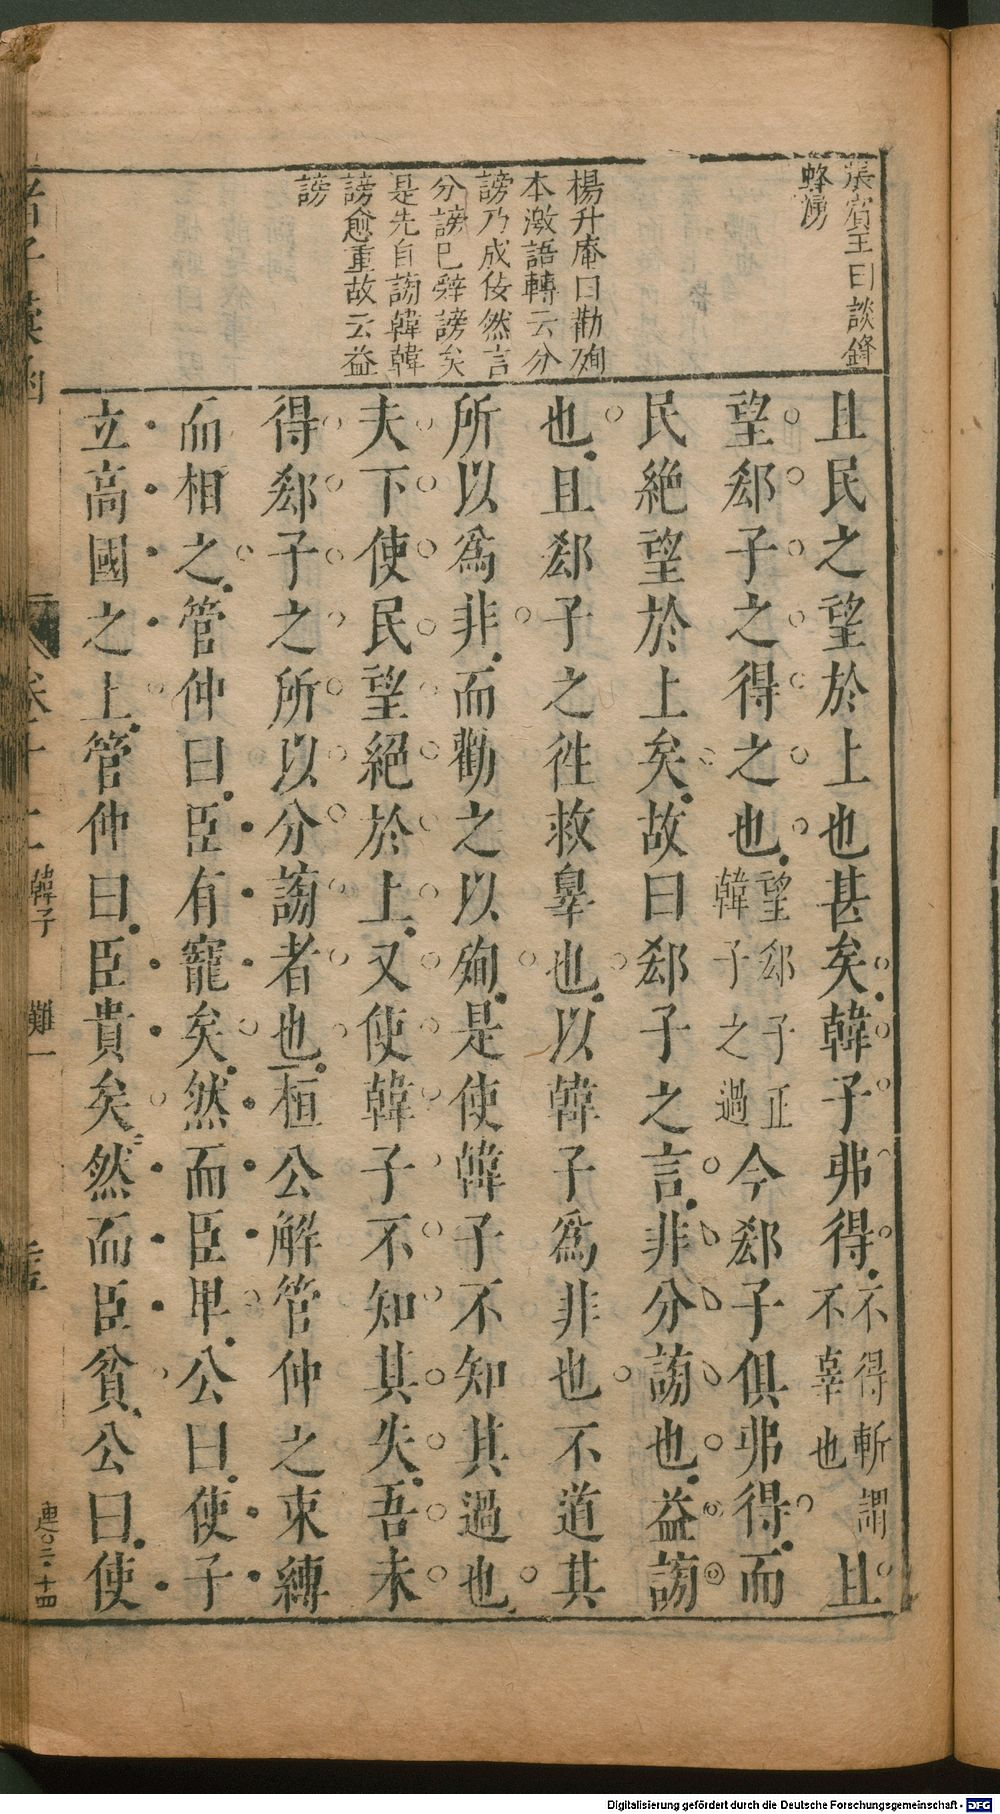 張賓王曰談鋒
蜂湧
楊升庵曰勸殉
本激語轉云分
謗乃成佞然言
分謗巳辥謗矣
是先自謗韓韓
謗愈重故云益
謗
且民之望於上也甚矣韓子弗得不得斬謂不辜也且
望郄子之得之也望郄子正韓子之過今郄子俱弗得而
民絶望於上矣故曰郄子之言非分謗也益謗
也且郄子之徃救辠也以韓子爲非也不道其
所以爲非而勸之以殉是使韓子不知其過也
夫下使民望絕於上又使韓子不知其失吾未
得郄子之所以分謗者也桓公解管仲之束縛
而相之管仲曰臣有寵矣然而臣卑公曰使子
立高國之上管仲曰臣貴矣然而臣貧公曰使
者子
卷十二
韓子
難一
Digitalisierung gefördert durch die Deutsche Forschungsgemeinschaft - DFG